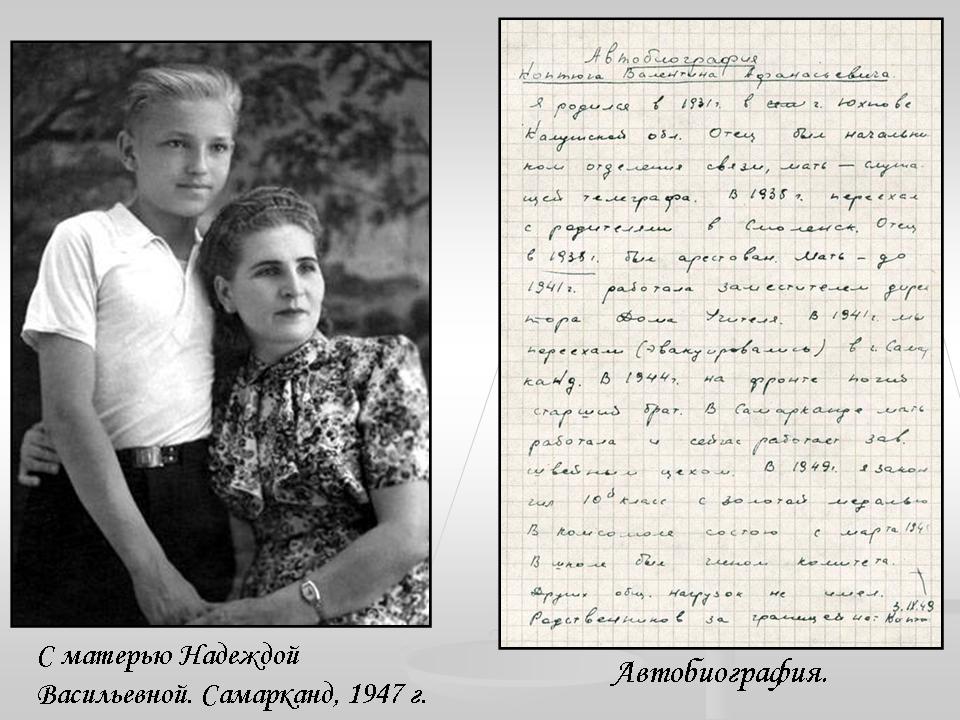 С матерью Надеждой
Васильевной. Самарканд, 1947 г.
Автобиография
Коптюга Валентина Афанасьевича.
Я родился в 1931г. в г. Юхнове
Калужской обл. Отец был начальни
ком отделения связи, мать — служа-
щей телеграфа. В 1938 г. переехал
с родителями в Смоленск. Отец
в 1938 г. был арестован. Мать – до
1941 г. работала заместителем дирек
тора Дома Учителя. В 1941г. мы
переехали (эвакуировались) в г. Самар
канд. В 1944г. на фронте погиб
старший брат. В Самарканде мать
работала и сейчас работает зав.
швейным цехом. В 1949г. я закон
чил 10й класс с золотой медалью
В комсомоле состою с марта
В школе был членом комитета.
Других общ. нагрузок не имел.
Родственников за границей нет.
3.IX.49
Копт
Автобиография.